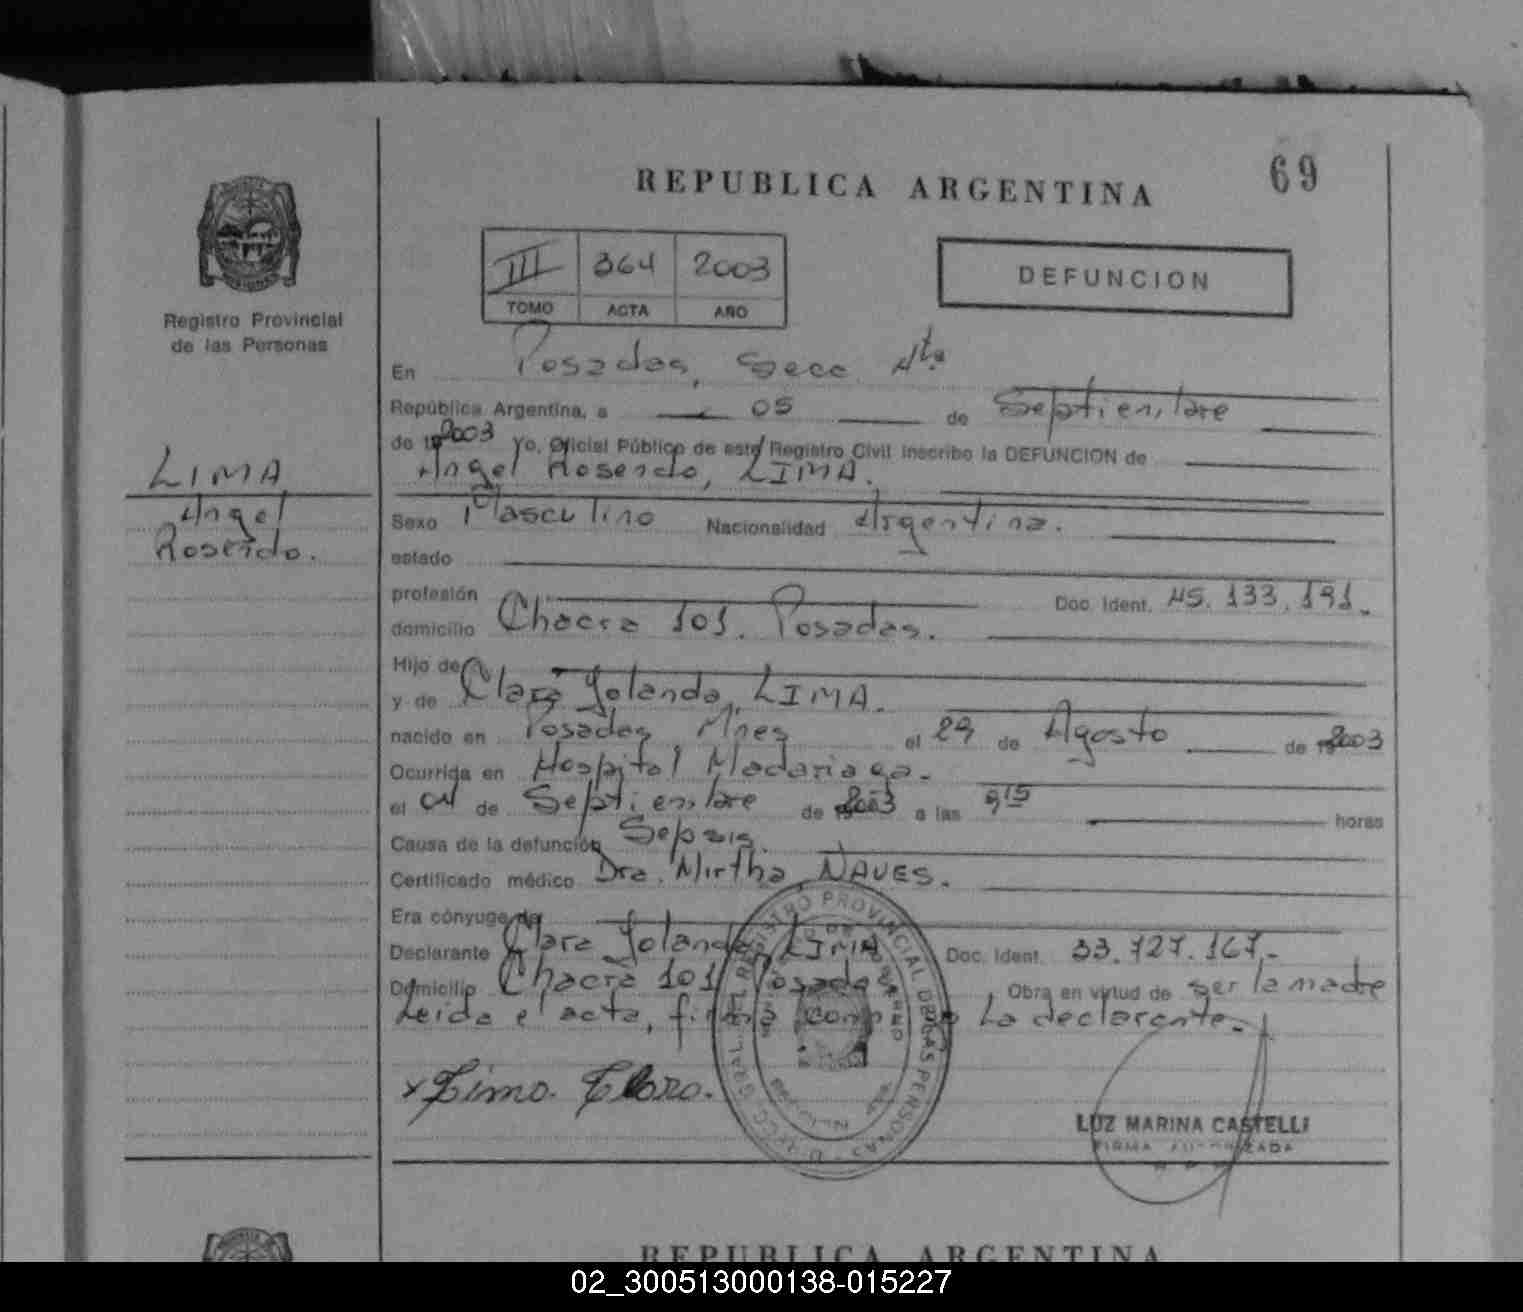 69
REPUBLICA ARGENTINA
III 364 2003
TOMO ACTA AÑO
DEFUNCION
Registro Provincial
de las Personas
LIMA
Angel
Rosendo.
En Posadas, Secc. 4ta
República Argentina, a 05 de Septiembre
de 2003 Yo, Oficial Público de este Registro Civil inscribo la DEFUNCION de
Angel Rosendo, LIMA.
Sexo Masculino Nacionalidad Argentina.
estado
profesión Doc. Ident. 45.133.191.
domicilio Chacra 101. Posadas.
Hijo de
y de Clara Yolanda, LIMA.
nacido en Posadas Mnes el 29 de Agosto de 2003
Ocurrida en Hospital Madariaga.
el 04 de Septiembre de 2003 a las 915 horas
Causa de la defunción Sepsis.
Certificado médico Dra. Mirtha NAVES.
Era cónyuge de
Declarante Clara Yolanda, LIMA Doc. Ident. 33.727.167.-
Domicilio Chacra 101 Posadas Obra en virtud de ser la madre
Leida el acta, firma conmigo La declarante.-
x Lima. Clara.
REGISTRO PROVINCIAL DE LAS PERSONAS
LUZ MARINA CASTELLI
FIRMA AUTORIZADA
REPUBLICA ARGENTINA
02_300513000138-015227